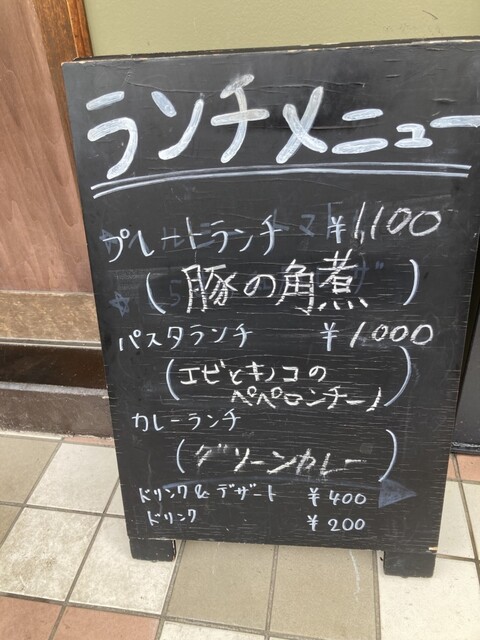 ランチメニュー
プレートランチ ¥1,100
(豚の角煮)
パスタランチ ¥1,000
(エビとキノコの
ペペロンチーノ)
カレーランチ
(グリーンカレー)
ドリンク&デザート ¥400
ドリンク ¥200